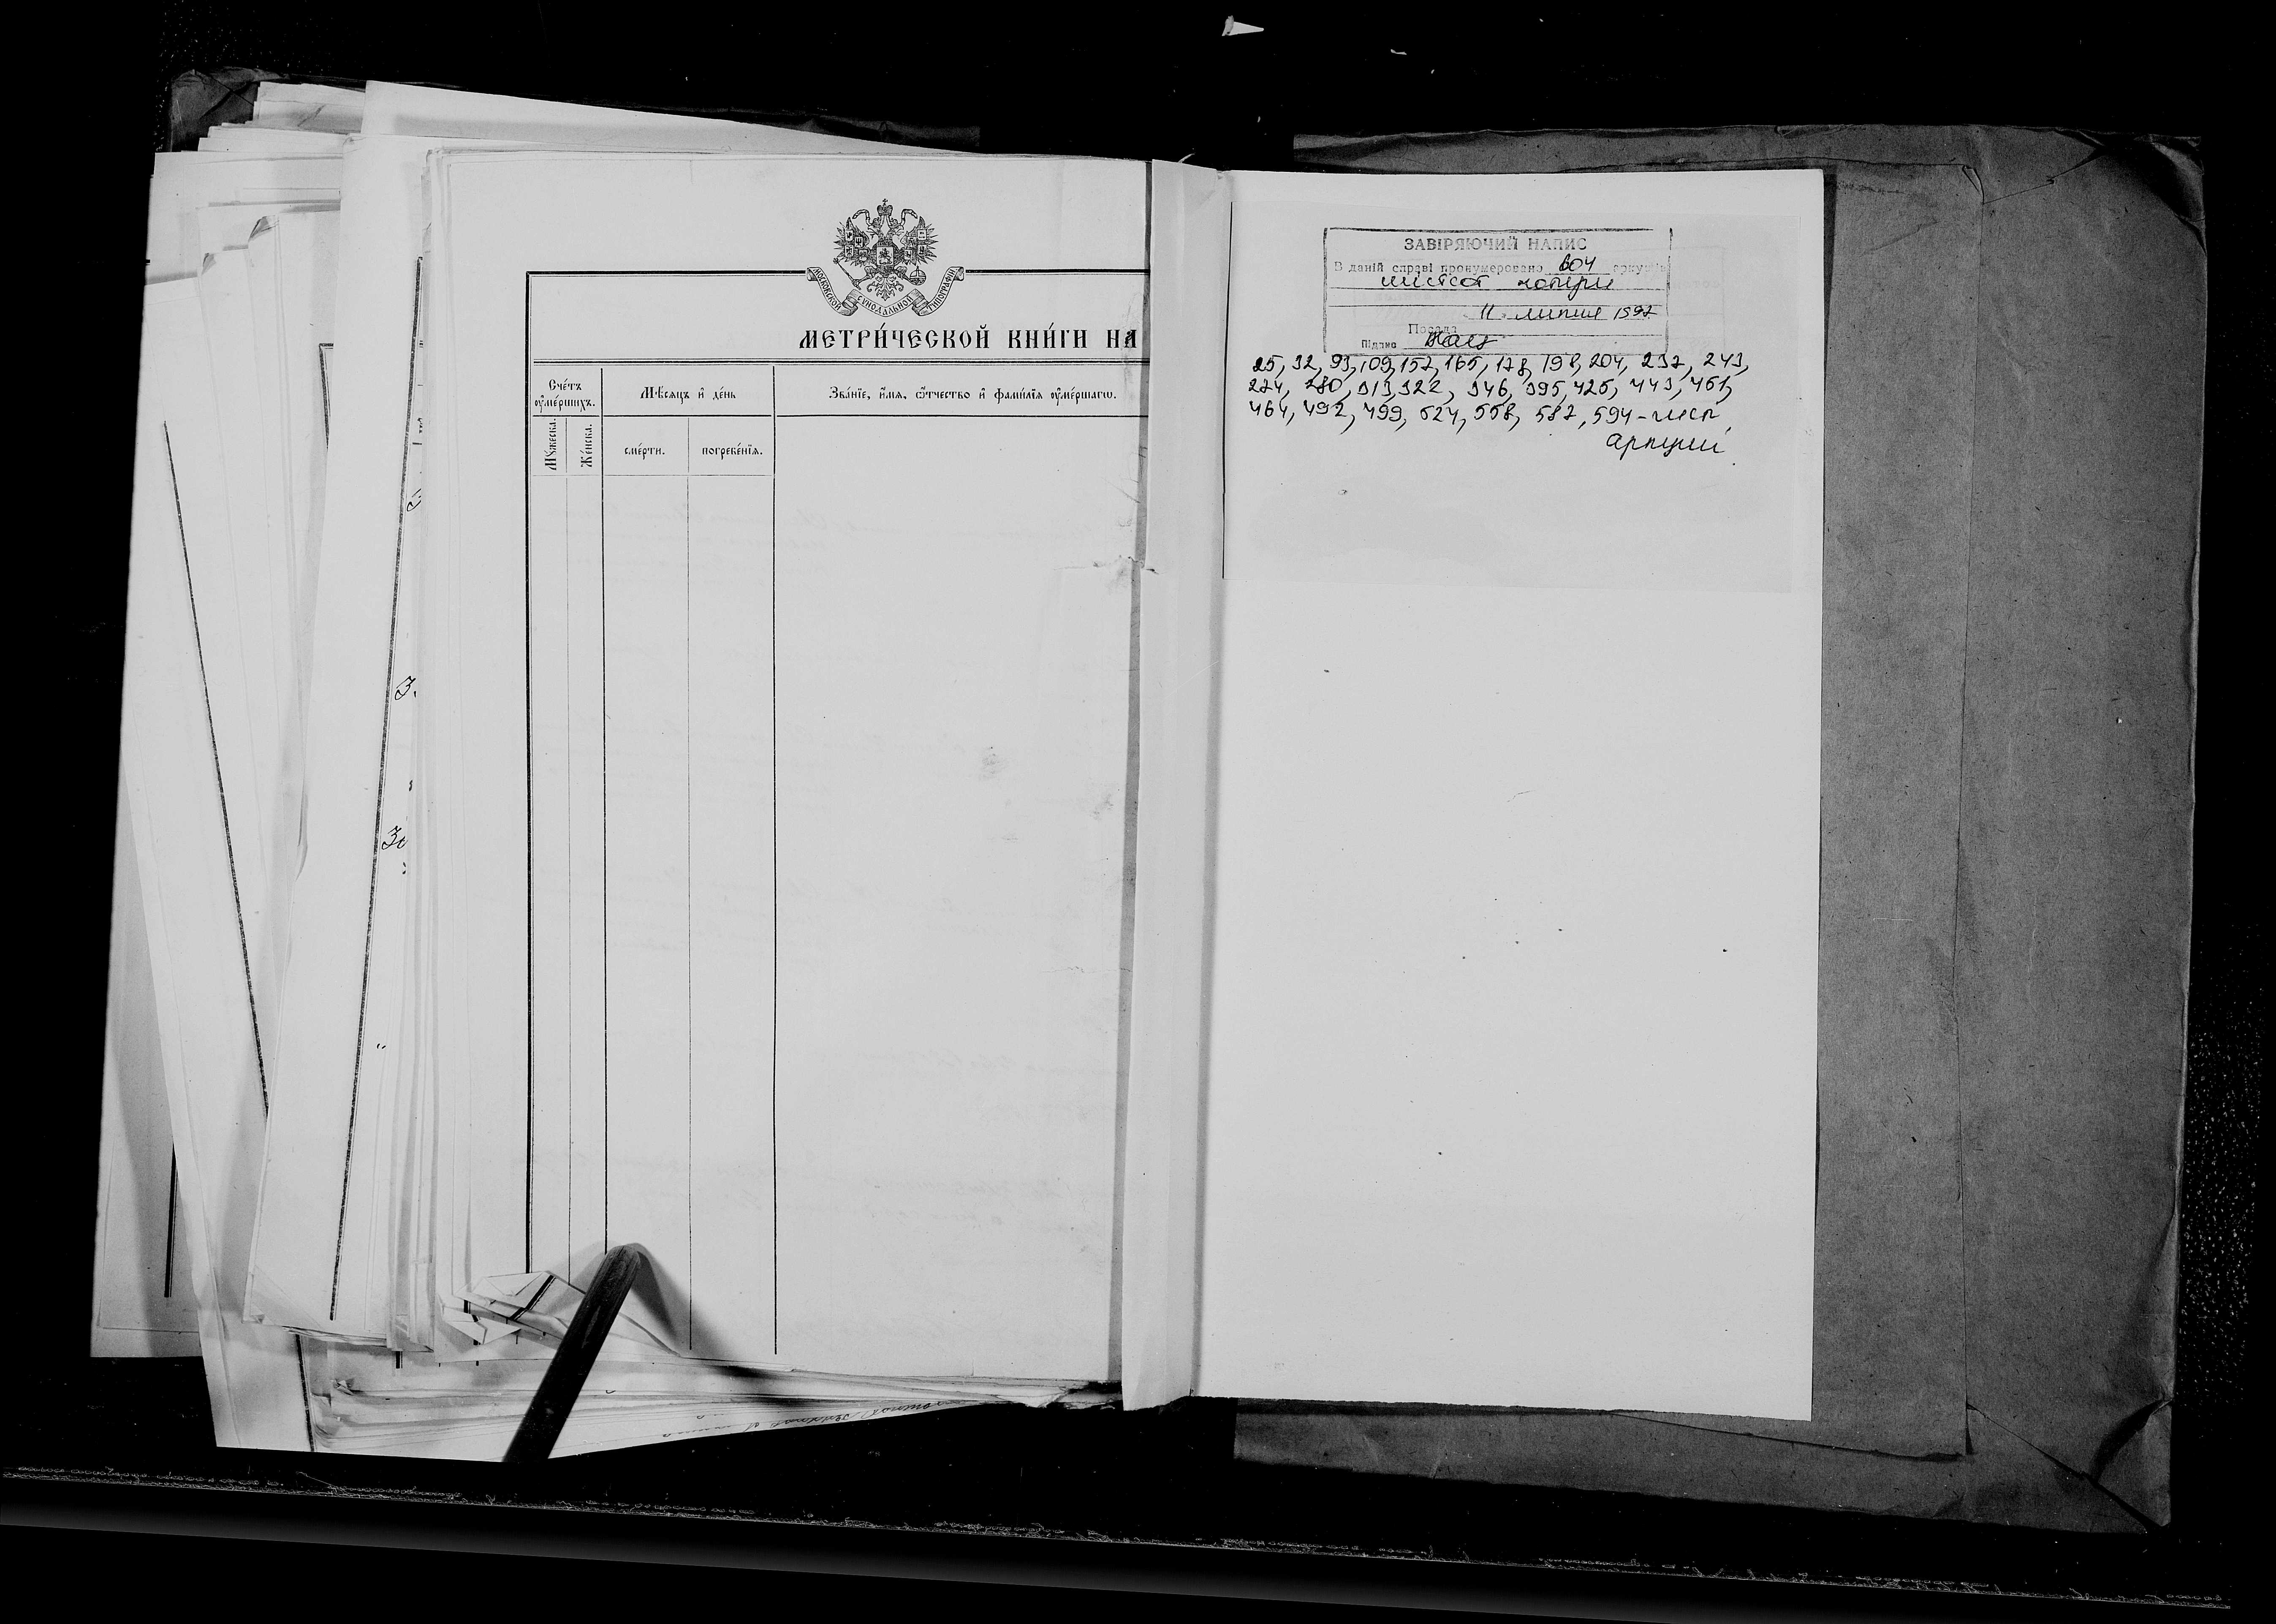 МОСКОВСКОЙ СУНОДАЛЬНОЙ ТИПОГРАФІИ
МЕТРИ́ЧЕСКОЙ КНИ́ГИ НА
Сче́тъ ᲂу҆ме́ршихъ.
Мѣ́сяцъ и҆ де́нь
Зва́нїе, и҆́мѧ, ѻ҆́тчество и҆ фами́лїѧ ᲂу҆ме́ршагѡ.
Мꙋ́жеска.
Же́нска.
сме́рти.
погребе́нїѧ.
ЗАВІРЯЮЧИЙ НАПИС
В даній справі пронумеровано 604 аркушів
шістсот чотири
11 липня 1997
Посада
Підпис
25, 32, 93, 109, 157, 165, 178, 198, 204, 237, 243,
274, 280, 313, 322, 346, 395, 425, 443, 451,
464, 492, 499, 524, 558, 587, 594 - чисті
аркуші